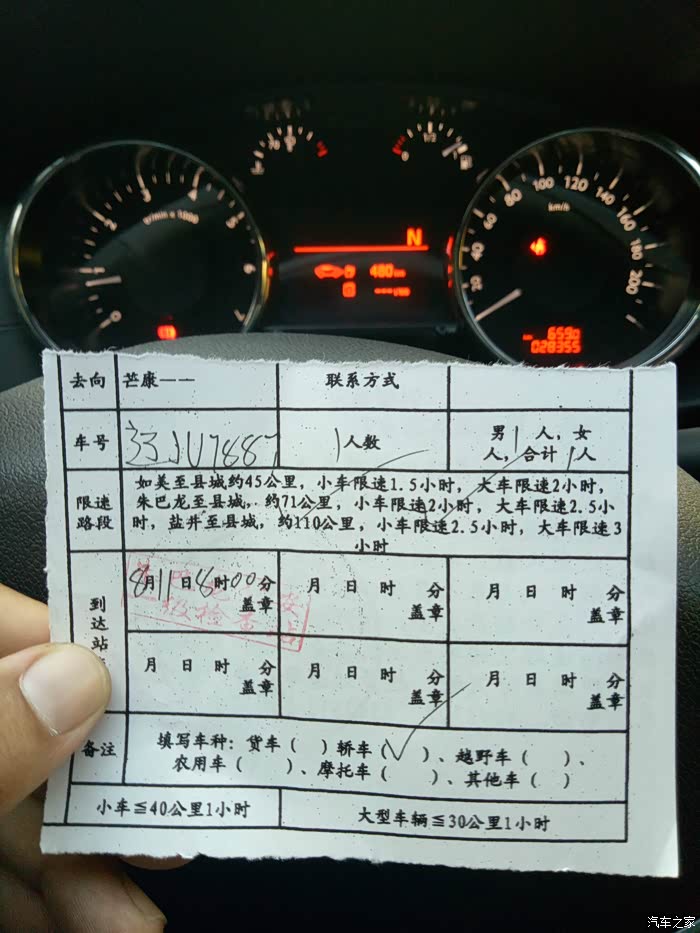 1/2
80 100 120 140 160 180 200
60
40
20
km/h
1 2 3 4 5 6 7
0
r/min x 1000
N
480 km
6590
028355
去向 芒康—— 联系方式
车号 1人数 男1人,女
人,合计1人
限速路段
如美至县城约45公里,小车限速1.5小时,大车限速2小时,
朱巴龙至县城,约71公里,小车限速2小时,大车限速2.5小
时,盐井至县城,约110公里,小车限速2.5小时,大车限速3
小时
到达站
8月11日8时00分 盖章 月 日 时 分 盖章 月 日 时 分 盖章
检查
月 日 时 分 盖章 月 日 时 分 盖章 月 日 时 分 盖章
备注
填写车种:货车( )轿车(✓)、越野车( )、
农用车( )、摩托车( )、其他车( )
小车≦40公里1小时 大型车辆≦30公里1小时
汽车之家